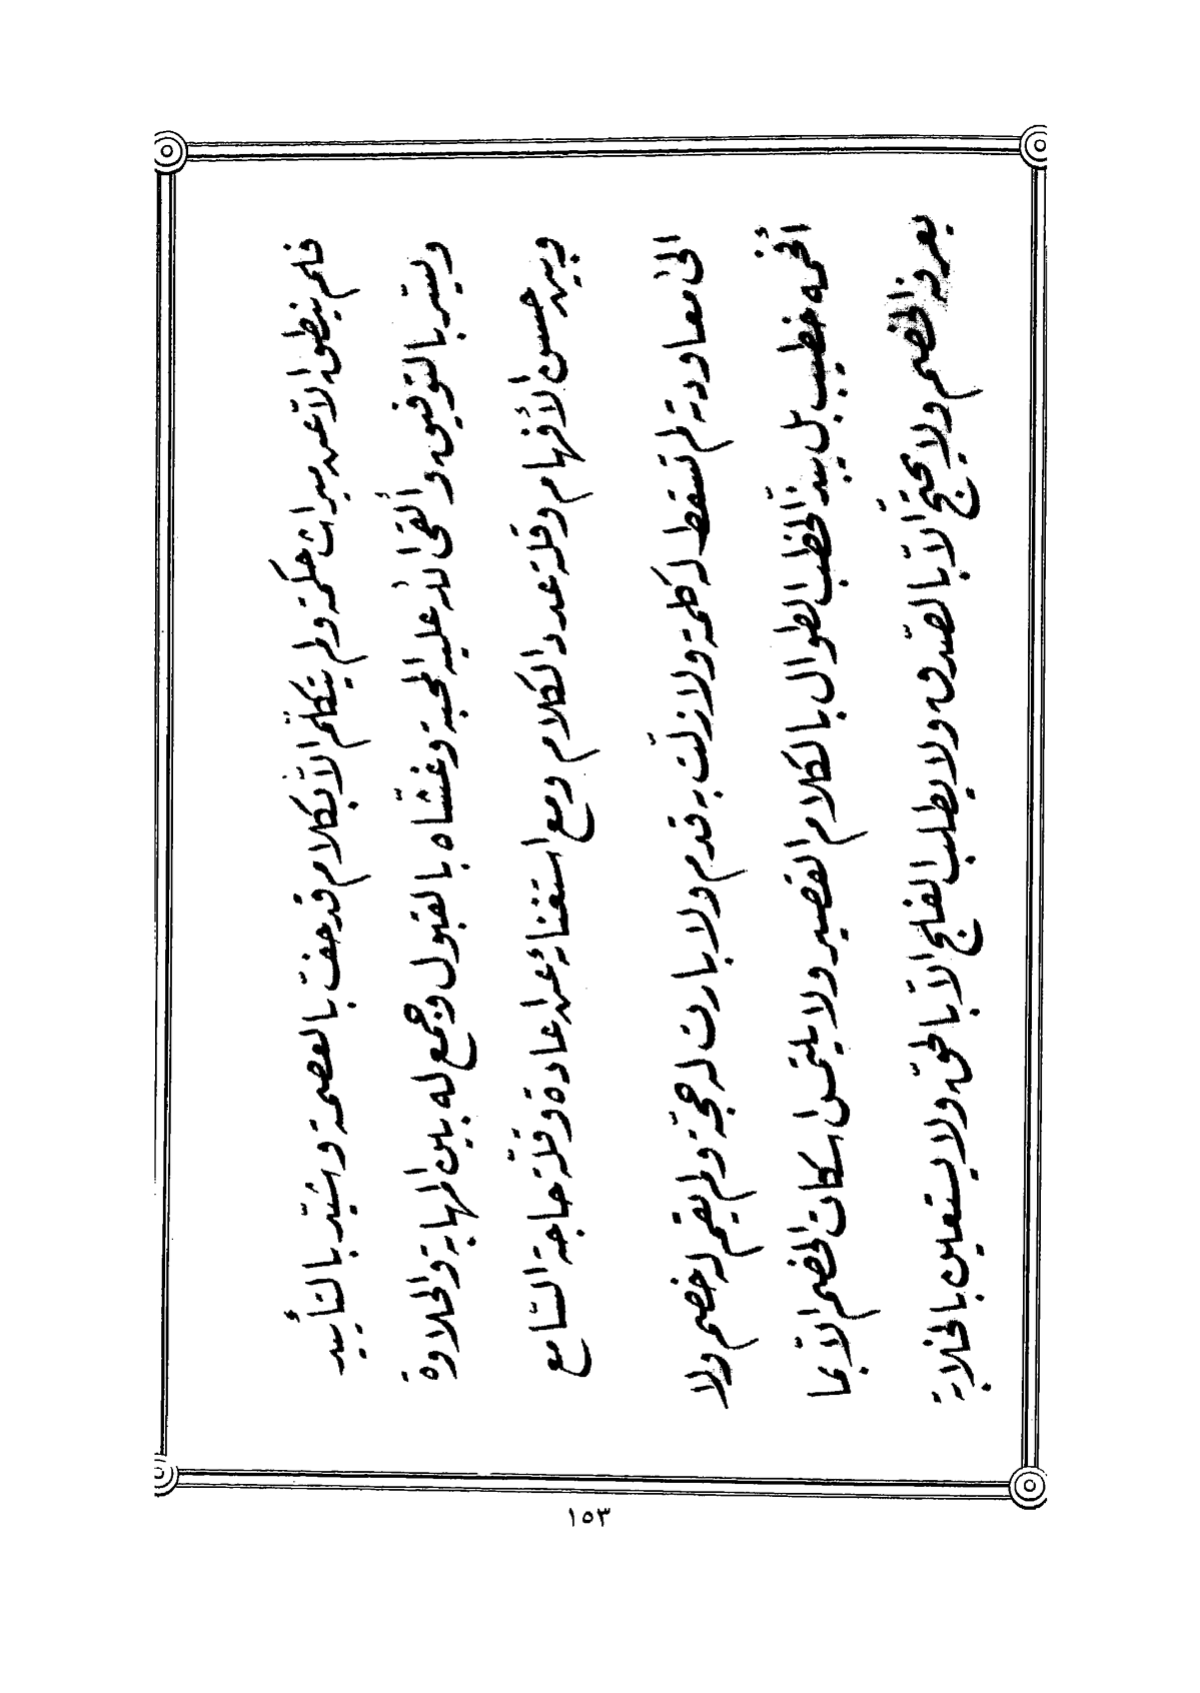 فلم ينطق الاّ عن ميراث حكمة ولم يتكلّم الاّ بكلام قد حفّ بالعصمة وشيّد بالتأييد
ويسّر بالتوفيق وألقى الله عليه المحبة وغشّاه بالقبول وجمع له بين المهابة والحلاوة
وبين حسن الأفهام وقلة عدد الكلام ومع استغنائه عن اعادة وقلّة حاجة السّامع
الى معاودته لم تسقط له كلمة ولا زلّت به قدم ولا بارت له حجّة ولم يقم له خصم ولا
أفحمه خطيب بل يبذّ الخطب الطوال بالكلام القصير ولا يلتمس اسكات الخصم الاّ بما
يعرفه الخصم ولا يحتجّ الاّ بالصّدق ولا يطلب الفلج الاّ بالحقّ ولا يستعين بالخلابة
١٥٣